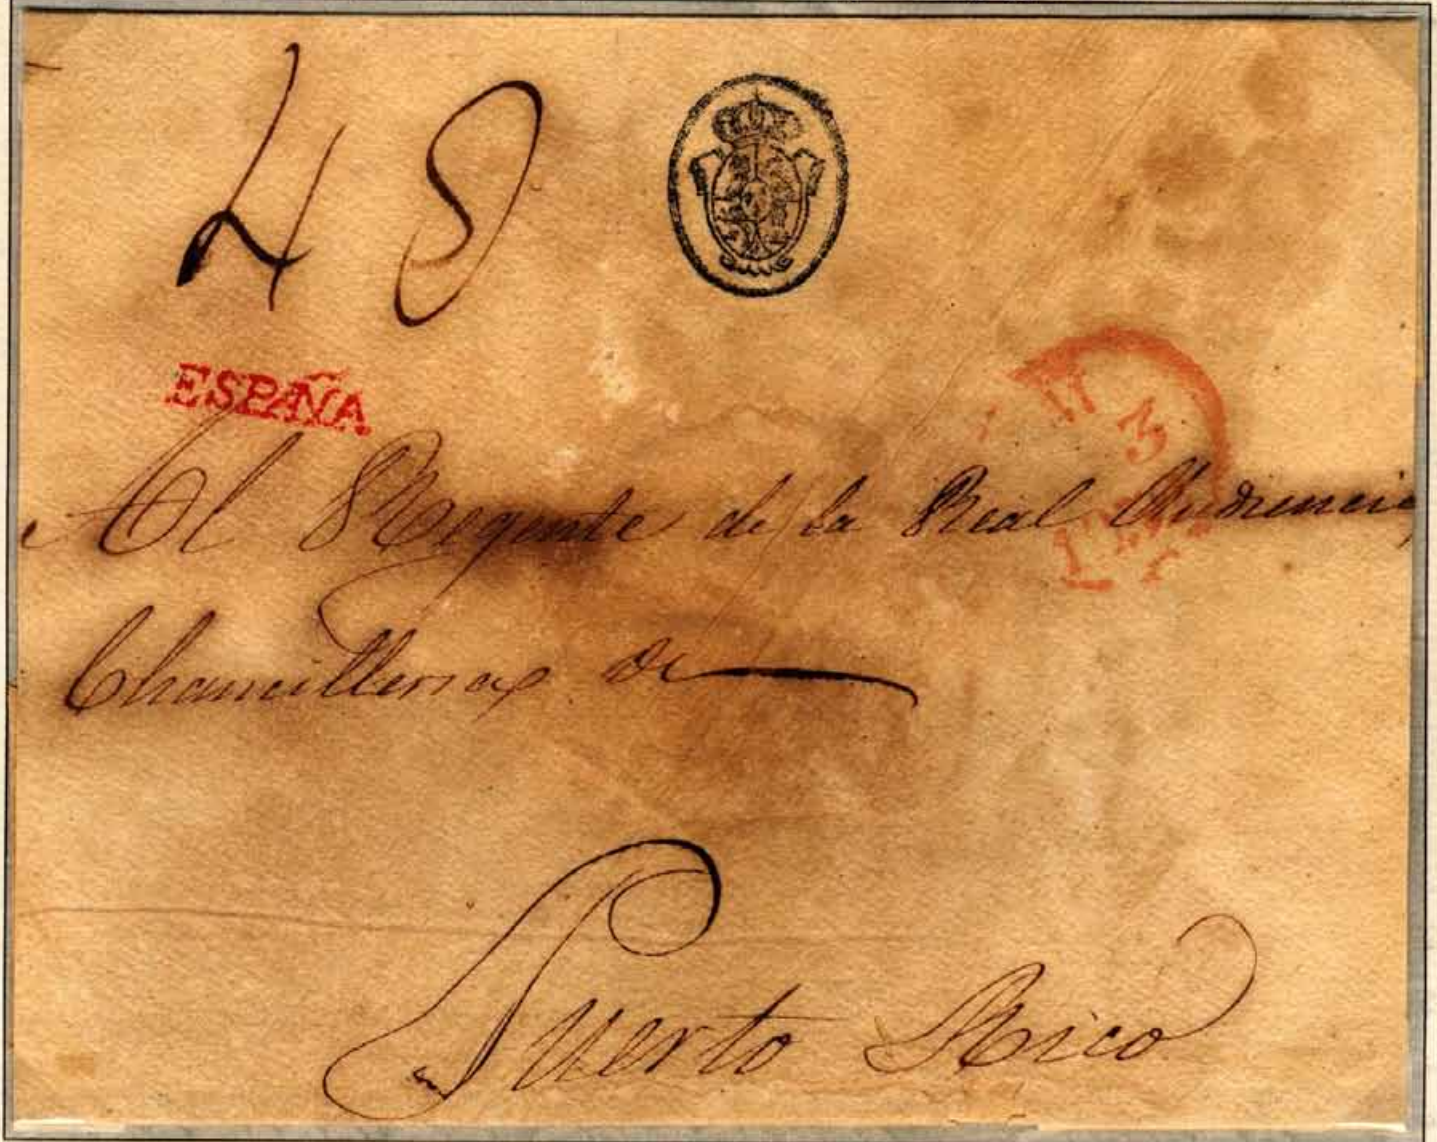 48
ESPAÑA
3
Al Regente de la Real Audiencia
Chancilleria de
Puerto Rico